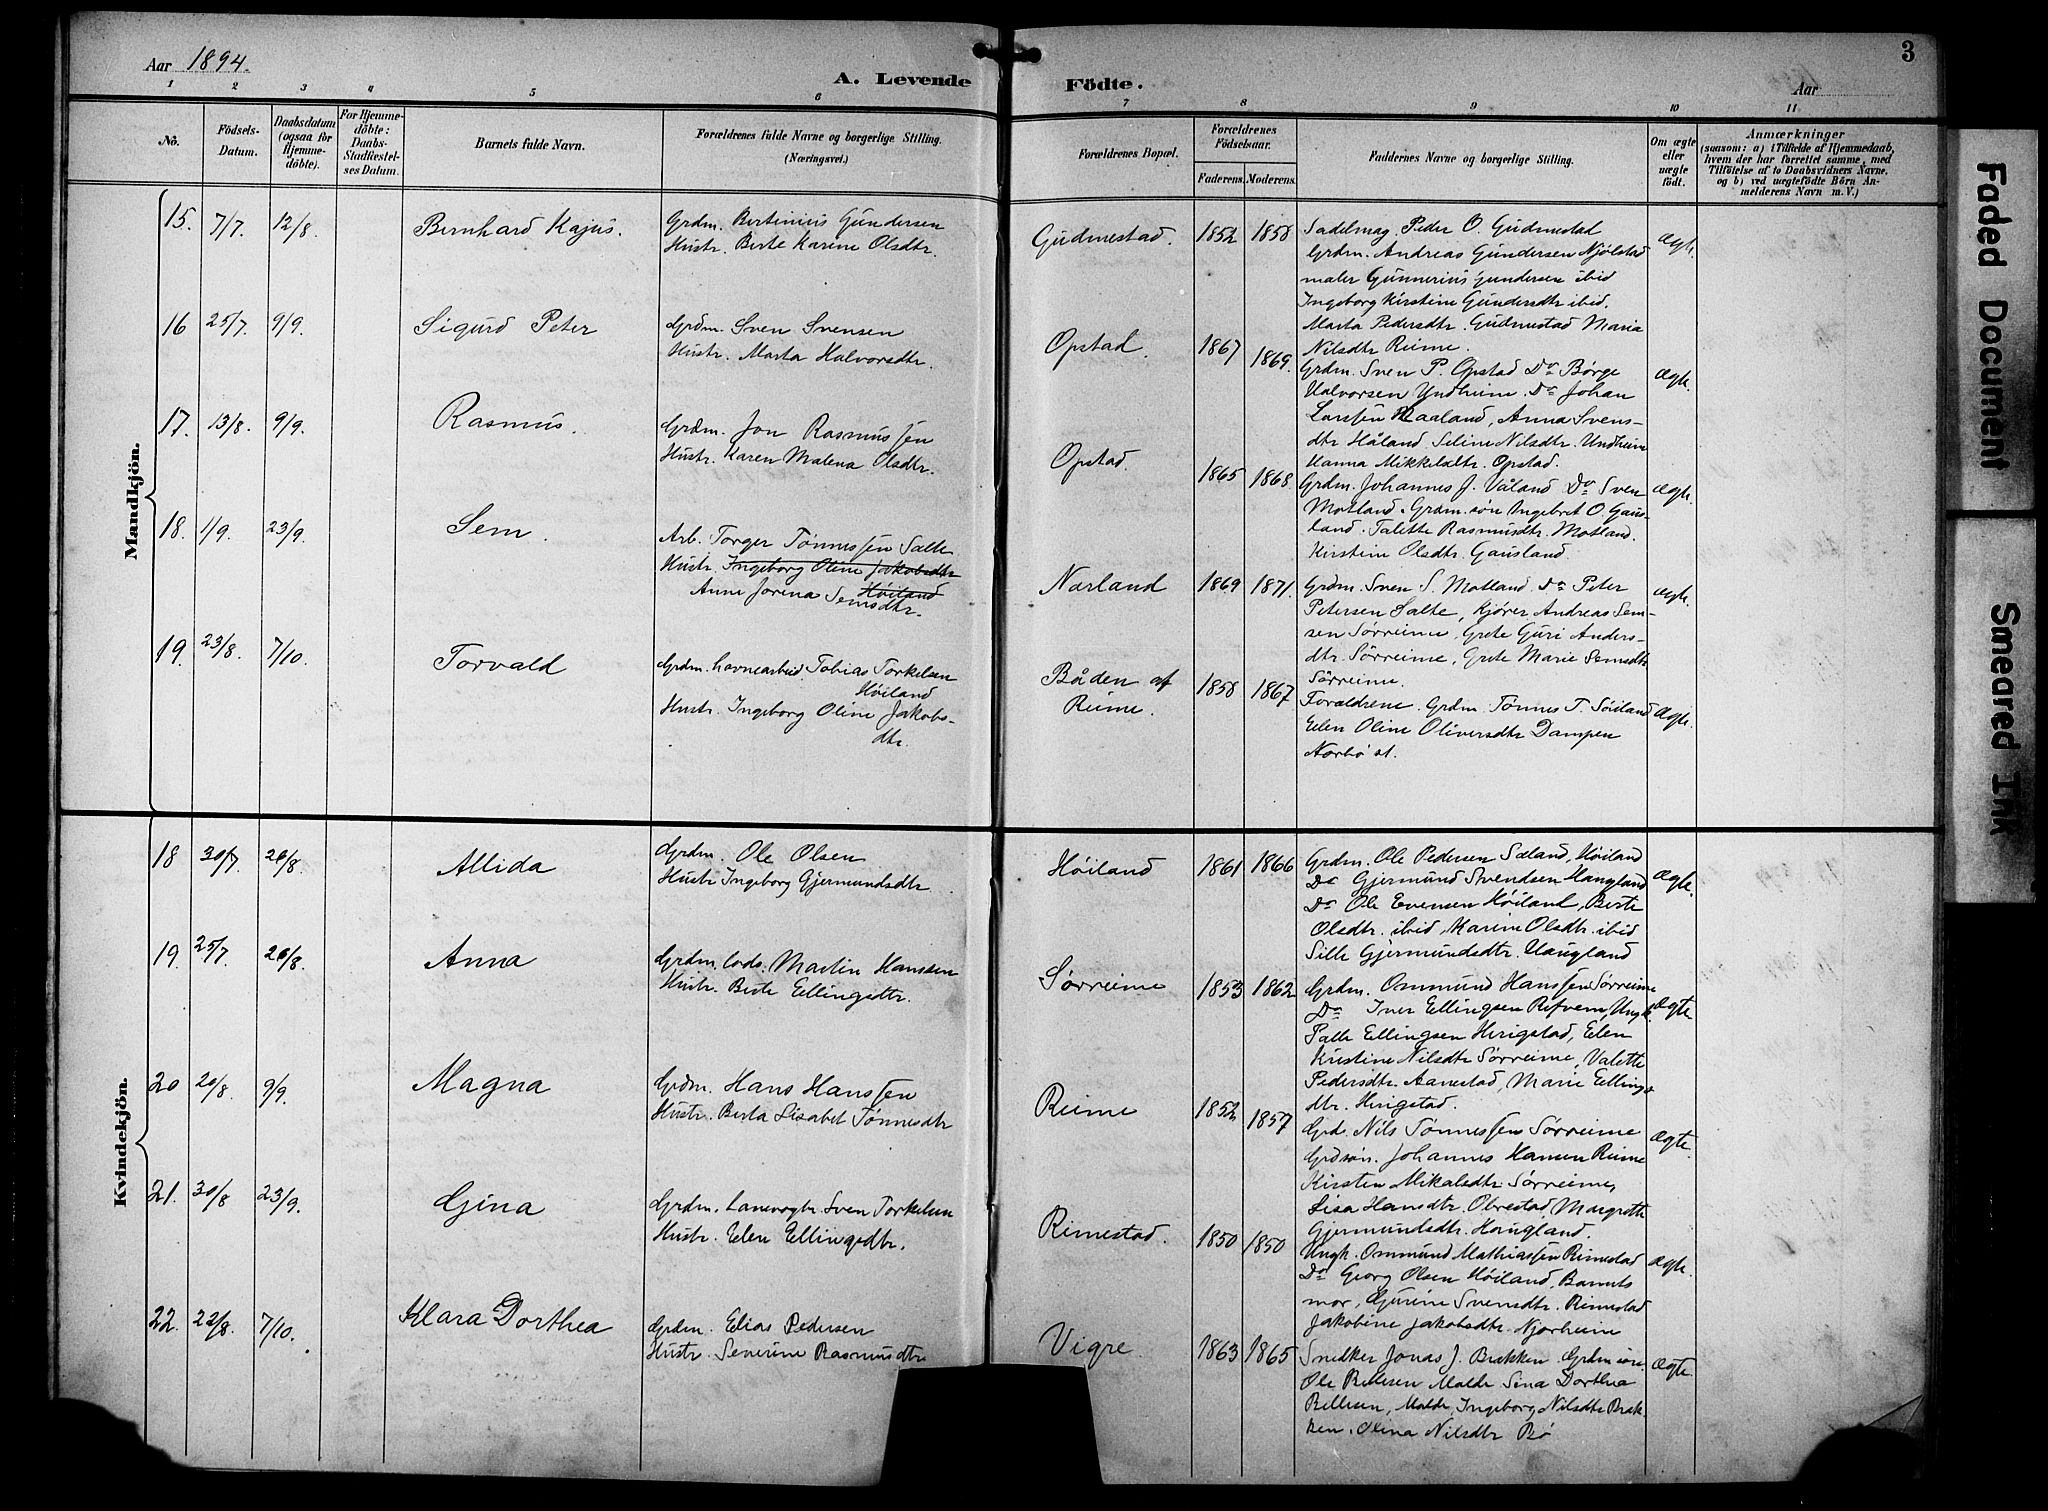 Aar 1894.
A. Levende
Födte.
Aar
3
1 2 3 4 5 6
7 8 9 10 11
No.
Födsels-
Datum.
Daabsdatum
(ogsaa for
Hjemme-
döbte).
For Hjemme-
döbte:
Daabs-
Stadfæstel-
ses Datum.
Barnets fulde Navn.
Forældrenes fulde Navne og borgerlige Stilling.
(Næringsvei.)
Forældrenes Bopæl.
Forældrenes
Födselsaar.
Faderens. Moderens.
Faddernes Navne og borgerlige Stilling.
Om ægte
eller
uægte
födt.
Anmærkninger
(saasom: a) i Tilfælde af Hjemmedaab,
hvem der har forrettet samme, med
Tilföielse af to Daabsvidners Navne.
og b) ved uægtefödte Börn An-
melderens Navn m. V.)
Mandkjön.
15. 7/7. 12/8. Bernhard Kajus. Grdm. Bertinius Gundersen
Hustr. Berte Karine Olsdtr.
Gudmestad. 1852 1858 Sadelmag. Peder O. Gudmestad
Grdm. Andreas Gundersen Njølstad
maler Gunnerius Gundersen ibid
Ingeborg Kirstine Gundersdtr ibid.
Marta Pedersdtr. Gudmestad Maria
Nilsdtr Reime.
ægte.
16 25/7. 9/9. Sigurd Peter Grdm. Sven Svensen
Hustr. Marta Halvorsdtr.
Opstad. 1867 1869. Grdm. Sven P. Opstad Do Børge
Halvorsen Undheim. Do Johan
Larssen Haaland, Anna Svens-
dtr Håland Seline Nilsdtr. Undheim
Hanna Mikkelsdtr. Opstad.
ægte.
17. 13/8. 9/9. Rasmus. Grdm. Jon Rasmussen
Hustr. Karen Malena Olsdtr.
Opstad. 1865 1868. Grdm. Johannes J. Våland Do Sven
Motland. Grdm. søn Ingebret O. Gaus-
land. Talette Rasmusdtr. Motland.
Kirstine Olsdtr. Gausland.
ægte.
18. 1/9. 23/9. Sem. Arb. Torger Tønnessen Salte
Hustr. Ingeborg Oline Jakobsdtr
Høiland
Anne Jorina Semsdtr.
Narland 1869 1871. Grdm. Sven S. Motland. Do Peter
Petersen Salte, Kjører Andreas Sem-
sen Sørreime, Grete Guri Anders-
dtr. Sørreime, Grete Marie Semsdtr
Sørreime.
ægte.
19. 23/8. 7/10. Torvald Grdm. havnearbeid. Tobias Torkelsen
Høiland
Hustr. Ingeborg Oline Jakobs-
dtr.
Båden af
Reime. 1858 1867 Forældrene. Grdm. Tønnes T. Høiland
Elen Oline Oliversdtr Dampen
Nærbø st.
ægte.
Kvindekjön.
18 30/7 26/8. Allida Grdm. Ole Olsen
Hustr Ingeborg Gjermundsdtr
Høiland 1861 1866 Grdm. Ole Pedersen Sæland, Høiland
Do Gjermund Svendsen Haugland
Do Ole Evensen Høiland, Berte
Olsdtr. ibid, Karine Olsdtr. ibid
Sille Gjermundsdtr. Haugland
ægte.
19. 25/7. 26/8. Anna Grdm. lods. Martin Hanssen
Hustr. Berte Ellingsdtr.
Sørreime 1853 1862 Grdm. Ommund Hanssen Sørreime
Do Iver Ellingsen Refvem, Ungk.
Palle Ellingsen Herigstad, Elen
Kristine Nilsdtr Sørreime, Valette
Pedersdtr. Aanestad, Marie Ellings-
dtr. Herigstad.
ægte
20 20/8. 9/9. Magna Grdm. Hans Hanssen
Hustr. Berta Lisabet Tønnesdtr
Reime 1852 1857 Grd. Nils Tønnessen Sørreime
Grdsøn. Johannes Hansen Reime
Kirsten Mikalsdtr. Sørreime,
Lisa Hansdtr. Obrestad, Margrethe
Gjermundsdtr. Haugland.
ægte.
21. 30/8 23/9. Gina Grdm. Sven Torkelsen
Hustr. Elen Ellingsdtr.
Rimestad. 1850 1850 Ungk. Ommund Mathiassen Rimestad
Do Georg Olsen Høiland, Barnets
mor, Gurine Svensdtr. Rimestad
Jakobine Jakobsdtr. Njærheim
ægte.
22. 22/8. 7/10. Klara Dorthea Grdm. Elias Pedersen
Hustr. Severine Rasmusdtr
Vigre. 1863 1865 Snedker Jonas J. Brækken. Grdm søn
Ole Pedersen Malde Sina Dorthea
Malde, Ingeborg Nilsdtr Bræk-
ken. Olina Nilsdtr Bø
ægte.
Faded Document
Smeared Ink